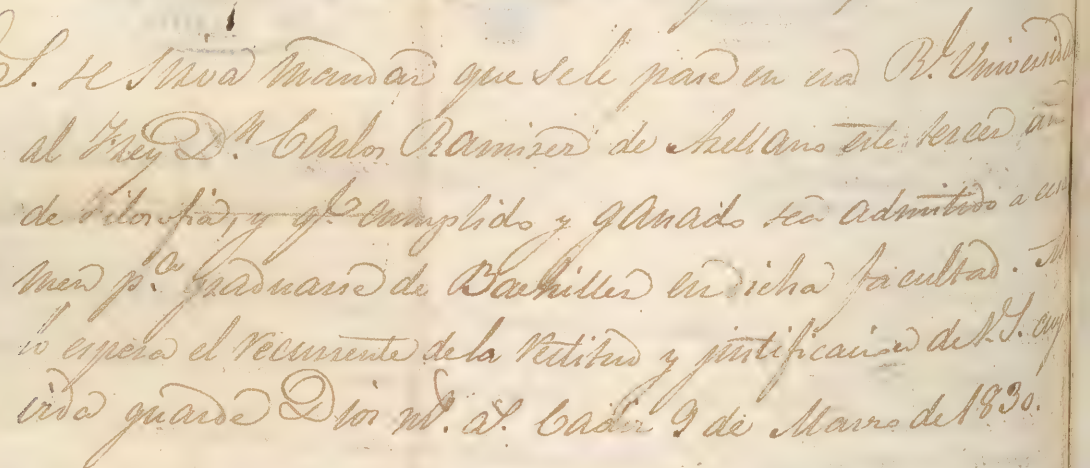 S. se sirva mandar que se le pase en esa Rl. Universida
al Frey Dn. Carlos Ramirez de Arellano este tercer añ
de Filosofia, y qe. cumplido y ganado sea admitido a exa
men pa. graduarse de Bachiller en dicha facultad.
lo espera el recurrente de la rectitud y justificacion de V.S. cuy
vida guarde Dios ms. as. Cadiz 9 de Marzo de 1830.